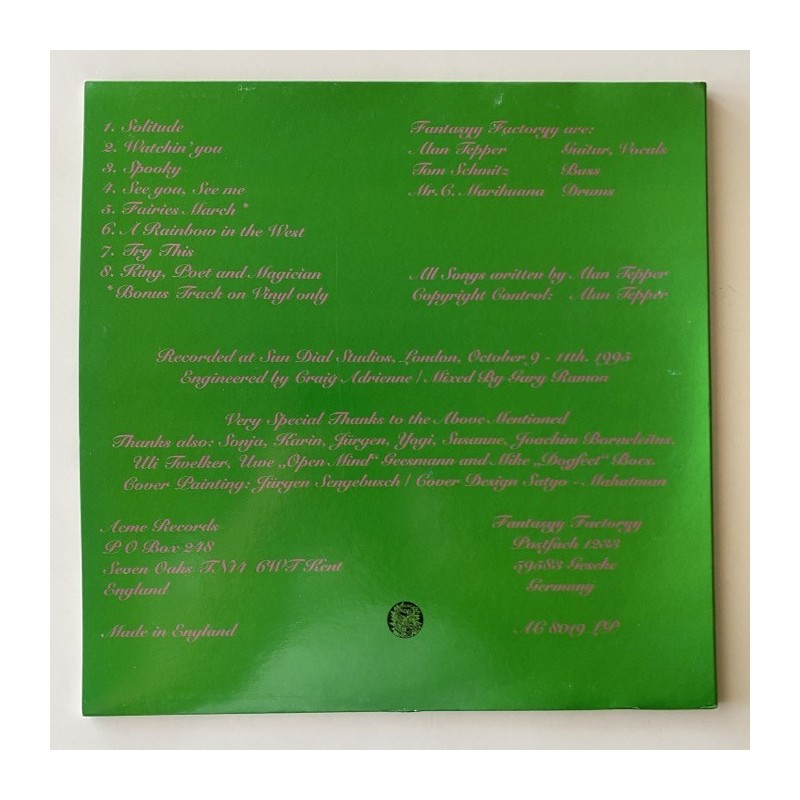 1. Solitude
2. Watchin' you
3. Spooky
4. See you, See me
5. Fairies March *
6. A Rainbow in the West
7. Try This
8. King, Poet and Magician
* Bonus Track on Vinyl only
Fantasyy Factoryy are:
Alan Tepper Guitar, Vocals
Tom Schmitz Bass
Mr. C. Marihuana Drums
All Songs written by Alan Tepper
Copyright Control: Alan Tepper
Recorded at Sun Dial Studios, London, October 9 - 11th. 1995
Engineered by Craig Adrienne / Mixed By Gary Ramon
Very Special Thanks to the Above Mentioned
Thanks also: Sonja, Karin, Jürgen, Yogi, Susanne, Joachim
Uli Twelker, Uwe „Open Mind“ Geesmann and Mike „Dogfeet“ Boes.
Cover Painting: Jürgen Sengebusch / Cover Design Satyo - Mahatman
Acme Records
P O Box 248
Seven Oaks TN14 6WT Kent
England
Made in England
Fantasyy Factoryy
Postfach 1233
59583 Geseke
Germany
AC 8019 LP